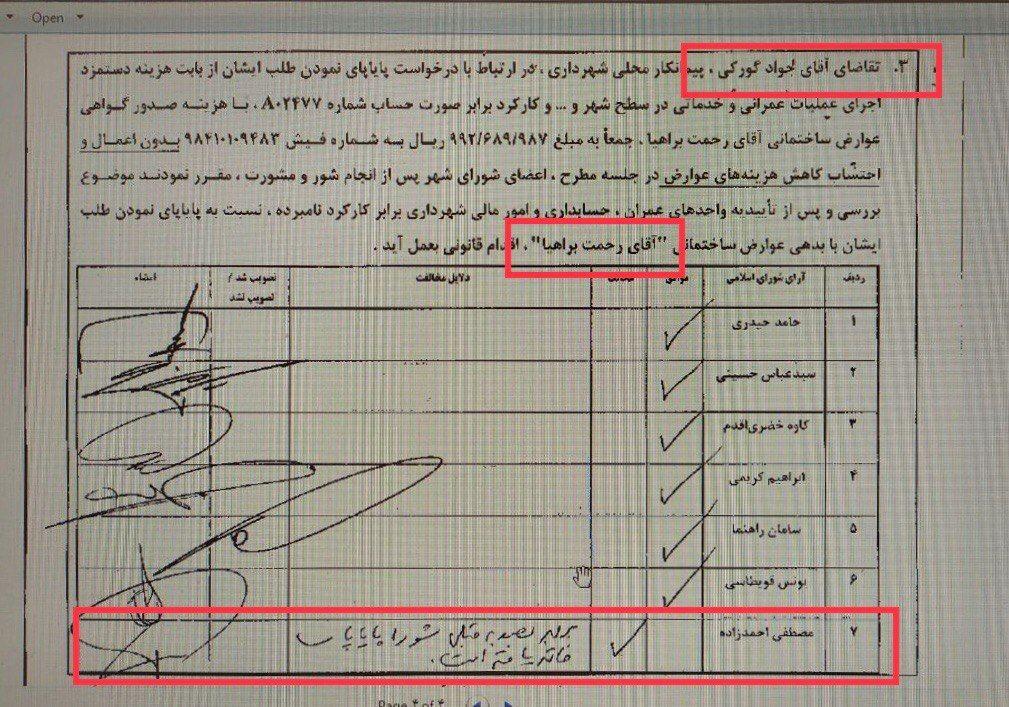 Open
۳. تقاضای آقای جواد گورکی ، پیمانکار محلی شهرداری ، در ارتباط با درخواست پایاپای نمودن طلب ایشان از بابت هزینه دستمزد
اجرای عملیات عمرانی و خدماتی در سطح شهر و ... و کارکرد برابر صورت حساب شماره ۸۰۲۴۷۷ ، با هزینه صدور گواهی
عوارض ساختمانی آقای رحمت براهیا ، جمعاً به مبلغ ۹۹۲/۶۸۹/۹۸۷ ریال به شماره فیش ۹۸۴۱۰۱۰۹۴۸۳ بدون اعمال و
احتساب کاهش هزینه‌های عوارض در جلسه مطرح ، اعضای شورای شهر پس از انجام شور و مشورت ، مقرر نمودند موضوع
بررسی و پس از تأییدیه واحدهای عمران ، حسابداری و امور مالی شهرداری برابر کارکرد نامبرده ، نسبت به پایاپای نمودن طلب
ایشان با بدهی عوارض ساختمانی "آقای رحمت براهیا" ، اقدام قانونی بعمل آید .
ردیف آرای شورای اسلامی موافق مخالف دلایل مخالفت تصویب شد / امضاء
تصویب نشد
۱ حامد حیدری
۲ سیدعباس حسینی
۳ کاوه خضری‌اقدم
۴ ابراهیم کریمی
۵ سامان راهنما
۶ یونس قویطاسی
۷ مصطفی احمدزاده برابر مصوبه قبلی شورا پایاپای
خاتمه یافته است.
Page ۴ of ۴